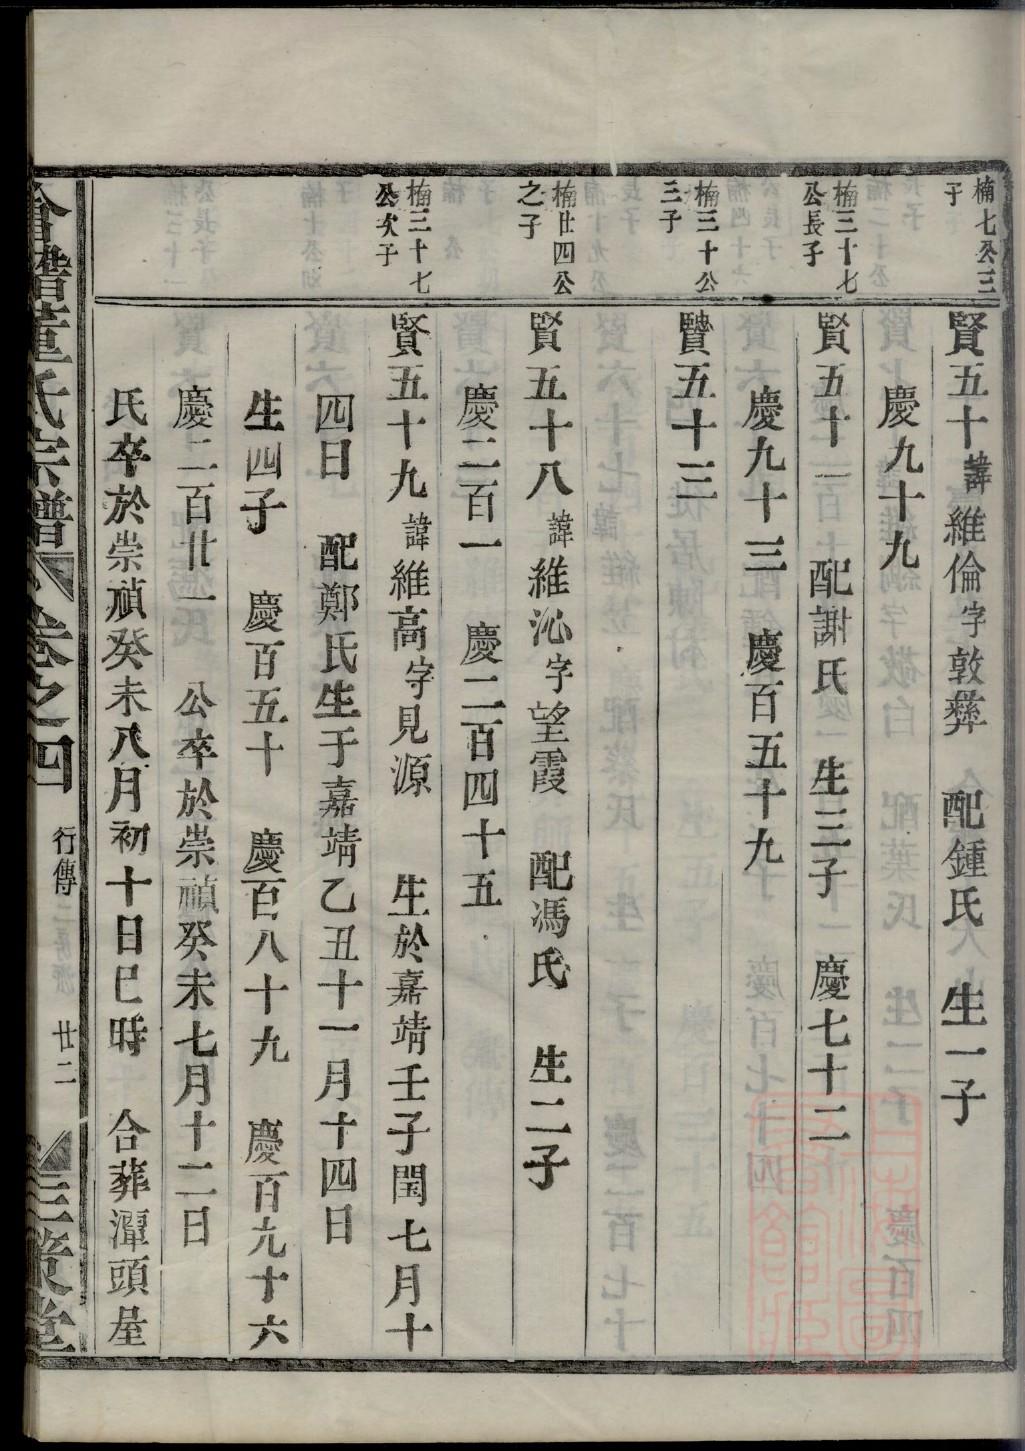 楠七公三
子
賢五十諱維倫字敦彝 配鍾氏 生一子
慶九十九
楠三十七
公長子
賢五十一 配謝氏 生三子 慶七十二
慶九十三 慶百五十九
楠三十公
三子
賢五十三
楠廿四公
之子
賢五十八諱維沁字望霞 配馮氏 生二子
慶二百一 慶二百四十五
楠三十七
公次子
賢五十九諱維高字見源 生於嘉靖壬子閏七月十
四日 配鄭氏生于嘉靖乙丑十一月十四日
生四子 慶百五十 慶百八十九 慶百九十六
慶二百廿一 公卒於崇禎癸未七月十二日
氏卒於崇禎癸未八月初十日巳時 合葬潭頭屋
董氏宗譜 卷之四
行傳
廿二
三策堂